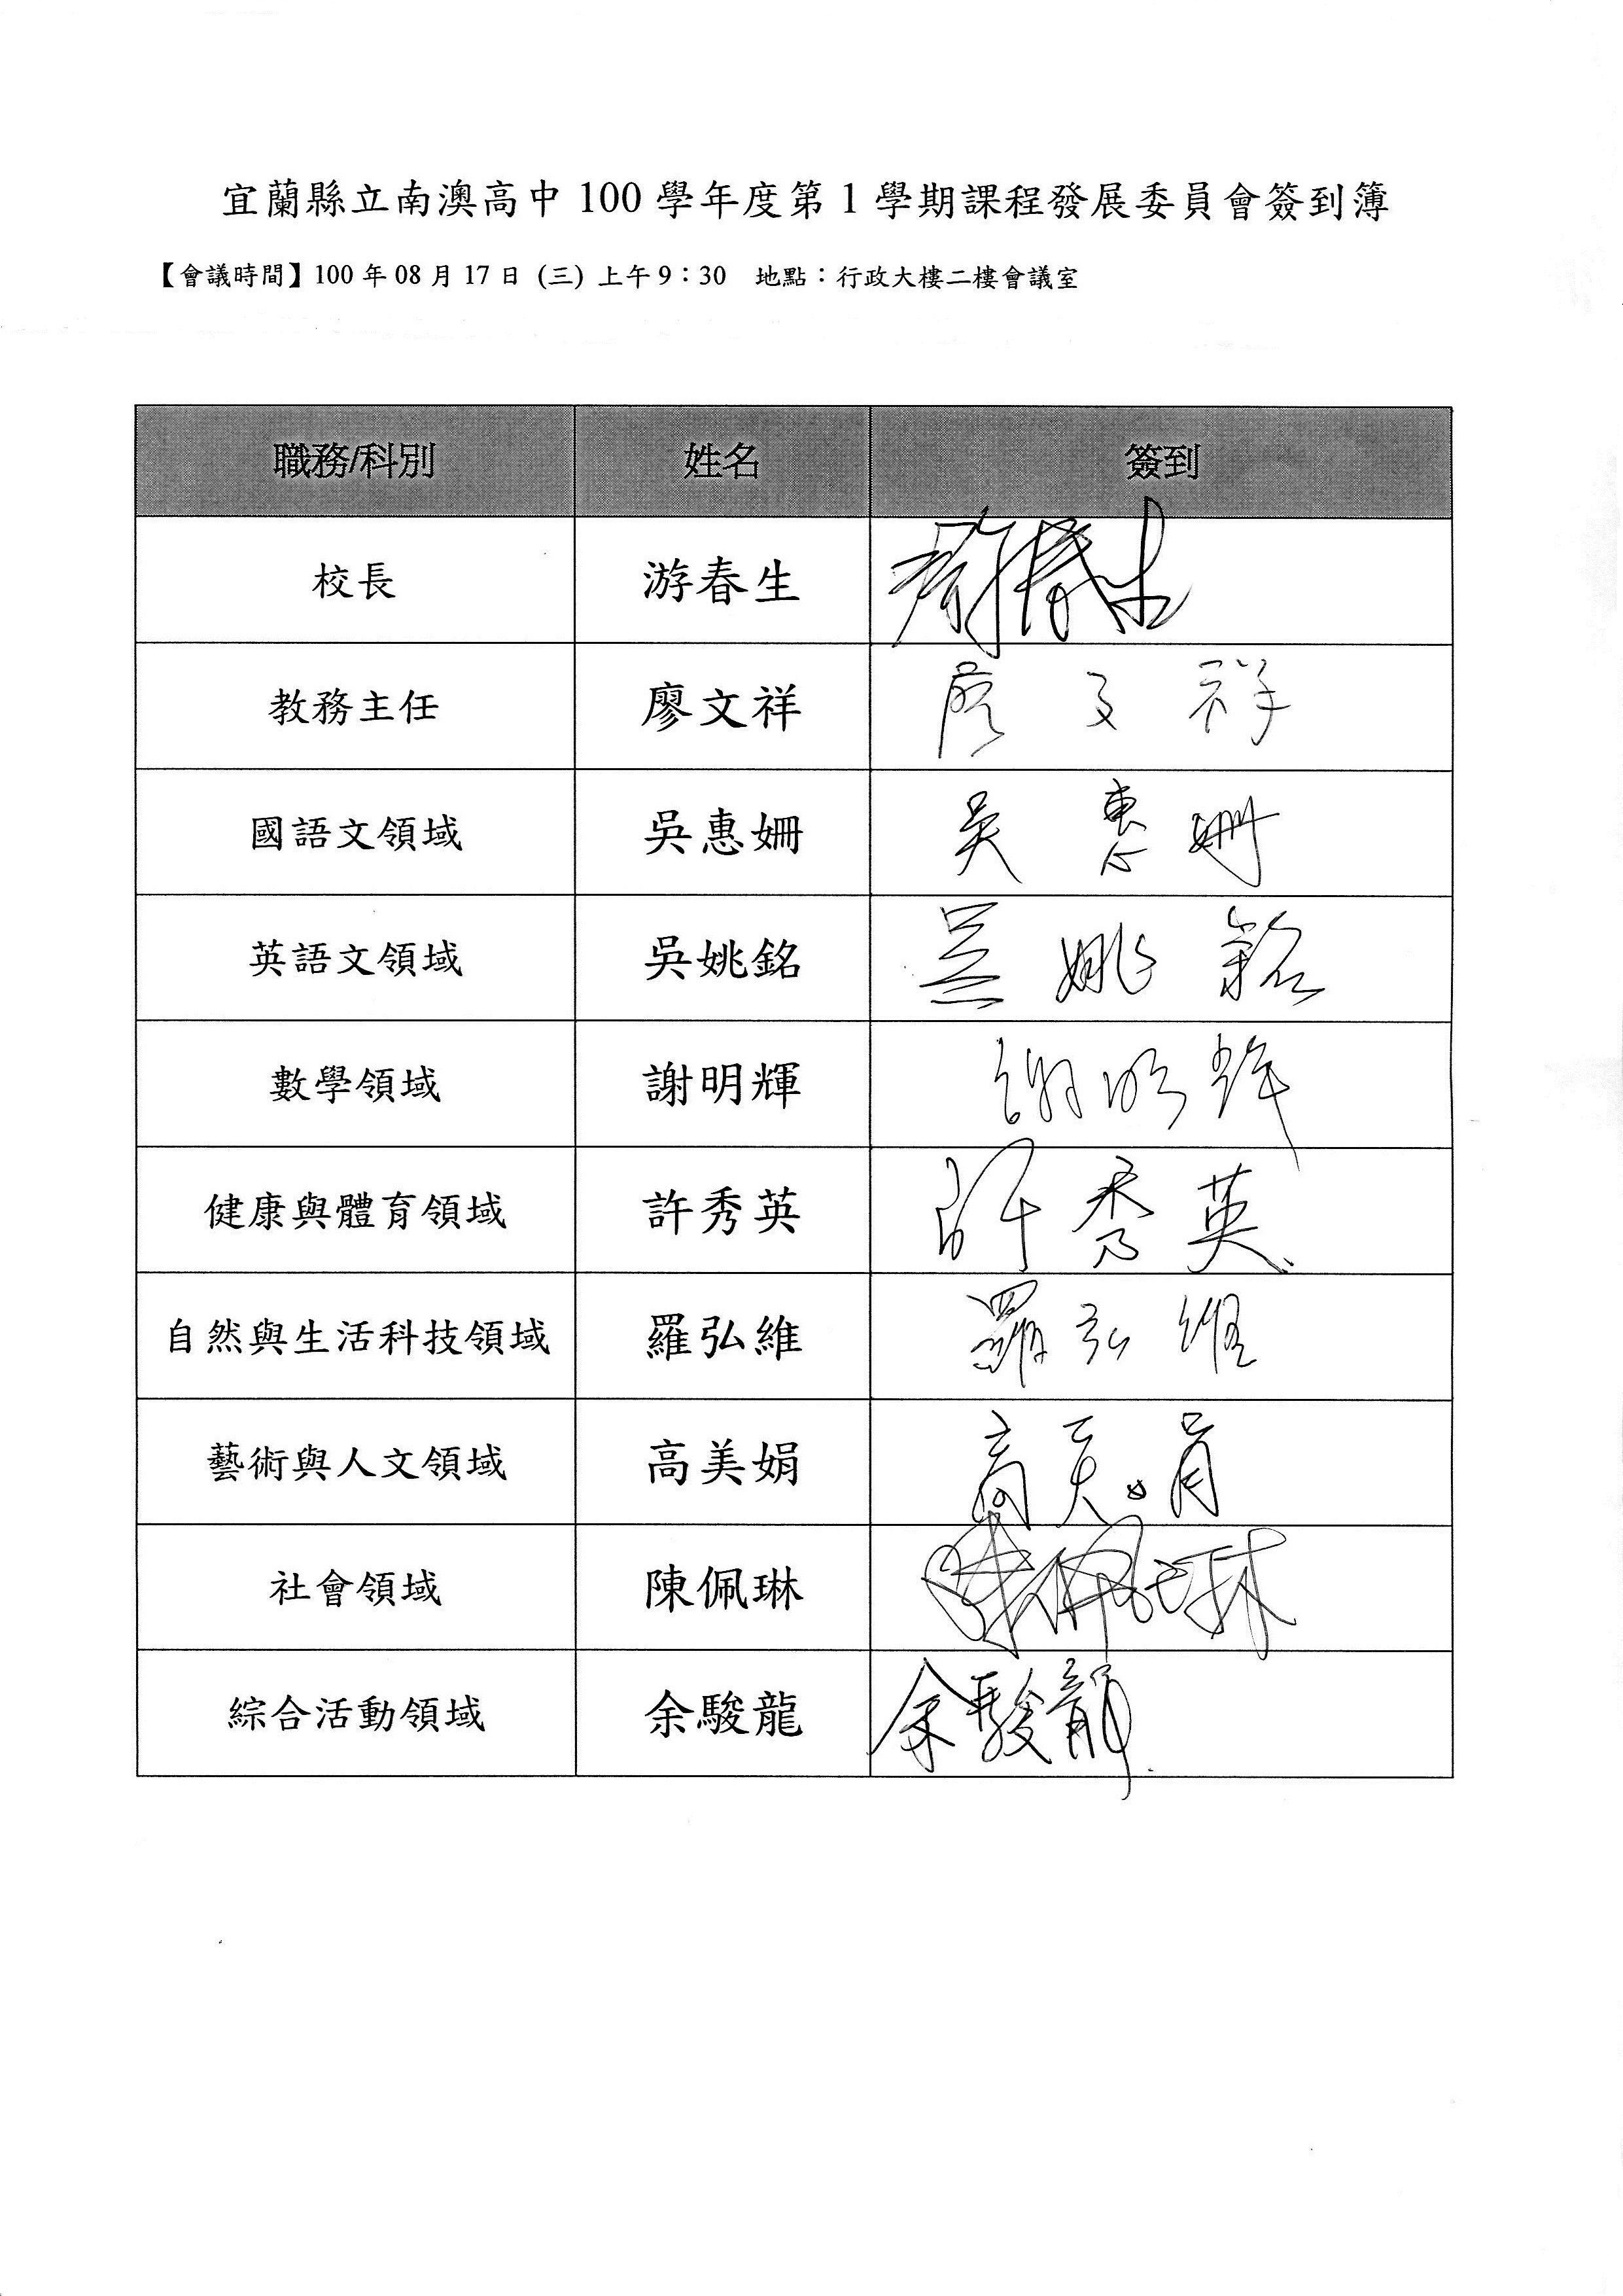 宜蘭縣立南澳高中 100 學年度第 1 學期課程發展委員會簽到簿
【會議時間】100 年 08 月 17 日 (三) 上午 9：30 地點：行政大樓二樓會議室
職務/科別 姓名 簽到
校長 游春生 游春生
教務主任 廖文祥 廖文祥
國語文領域 吳惠姍 吳惠姍
英語文領域 吳姚銘 吳姚銘
數學領域 謝明輝 謝明輝
健康與體育領域 許秀英 許秀英
自然與生活科技領域 羅弘維 羅弘維
藝術與人文領域 高美娟 高美娟
社會領域 陳佩琳 陳佩琳
綜合活動領域 余駿龍 余駿龍